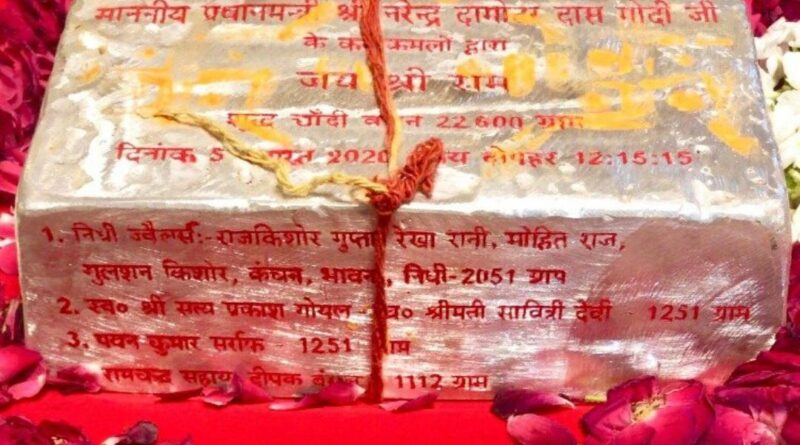 माननीय प्रधानमन्त्री श्री नरेन्द्र दामोदर दास मोदी जी
के कर कमलो द्वारा
जय श्री राम
शुद्ध चाँदी वजन 22600 ग्राम
दिनांक 5 अगस्त 2020 समय दोपहर 12:15:15
1. निधी ज्वैलर्स:-राजकिशोर गुप्ता रेखा रानी, मोहित राज,
गुलशन किशोर, कंचन, भावना, निधी-2051 ग्राम
2. स्व० श्री सत्य प्रकाश गोयल - स्व० श्रीमती सावित्री देवी - 1251 ग्राम
3. पवन कुमार सर्राफ - 1251 ग्राम
रामचन्द्र सहाय दीपक 1112 ग्राम